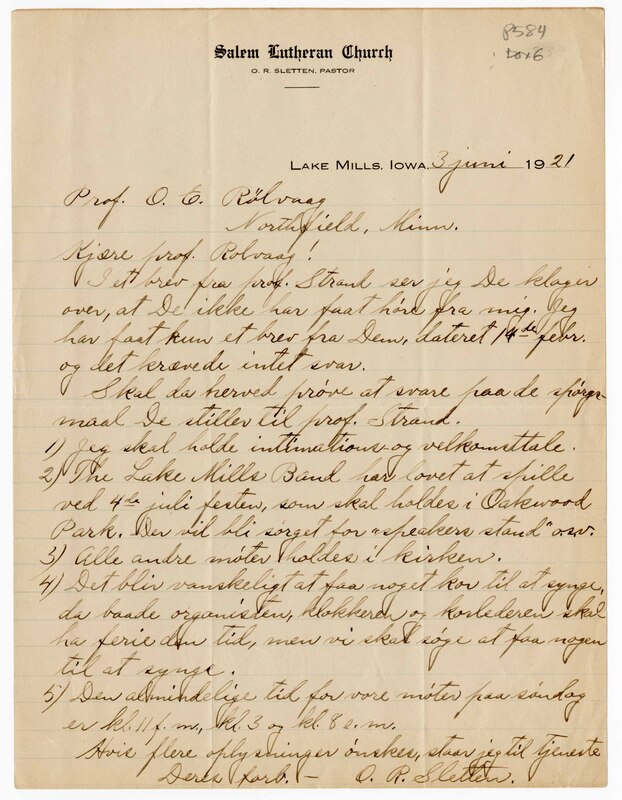 P584
Box 6
Salem Lutheran Church
O. R. SLETTEN, PASTOR
LAKE MILLS, IOWA, 3 juni 1921
Prof. O. E. Rölvaag
Northfield, Minn.
Kjære prof. Rolvaag!
I et brev fra prof. Strand ser jeg De klager
over, at De ikke har faat höre fra mig. Jeg
har faat kun et brev fra Dem, dateret 14de febr.
og det krævede intet svar.
Skal da herved pröve at svare paa de spörgs-
maal De stiller til prof. Strand.
1) Jeg skal holde intimations- og velkomsttale.
2) The Lake Mills Band har lovet at spille
ved 4de juli festen, som skal holdes i Oakwood
Park. Der vil bli sörget for "speakers stand" o.s.v.
3) Alle andre möter holdes i kirken.
4) Det bliv vanskeligt at faa noget kor til at synge,
da baade organisten, klokkeren og korlederen skal
ha ferie den tid, men vi skal söge at faa nogen
til at synge.
5) Den almindelige tid for vore möter paa söndag
er kl. 11 f.m., kl. 3 og kl. 8 e.m.
Hvis flere oplysninger önskes, staar jeg til tjeneste
Deres forb. — O. R. Sletten.